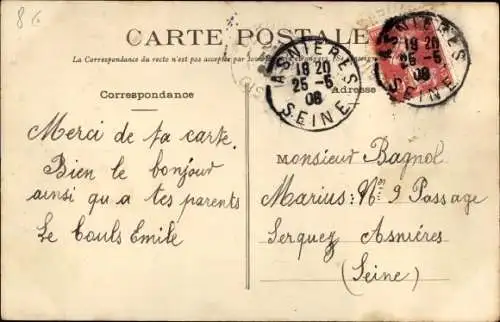 8 €
CARTE POSTALE
La Correspondance du recto n'est pas acceptée par
Correspondance
Adresse
ASNIERES
19 20
25 - 5
08
SEINE
ASNIERES
19 20
25 - 5
08
SEINE
Merci de ta carte.
Bien le bonjour
ainsi qu a tes parents
Le Couls Emile
monsieur Bagnol
Marius: Nos 9 Passage
Serquez Asnières
(Seine)